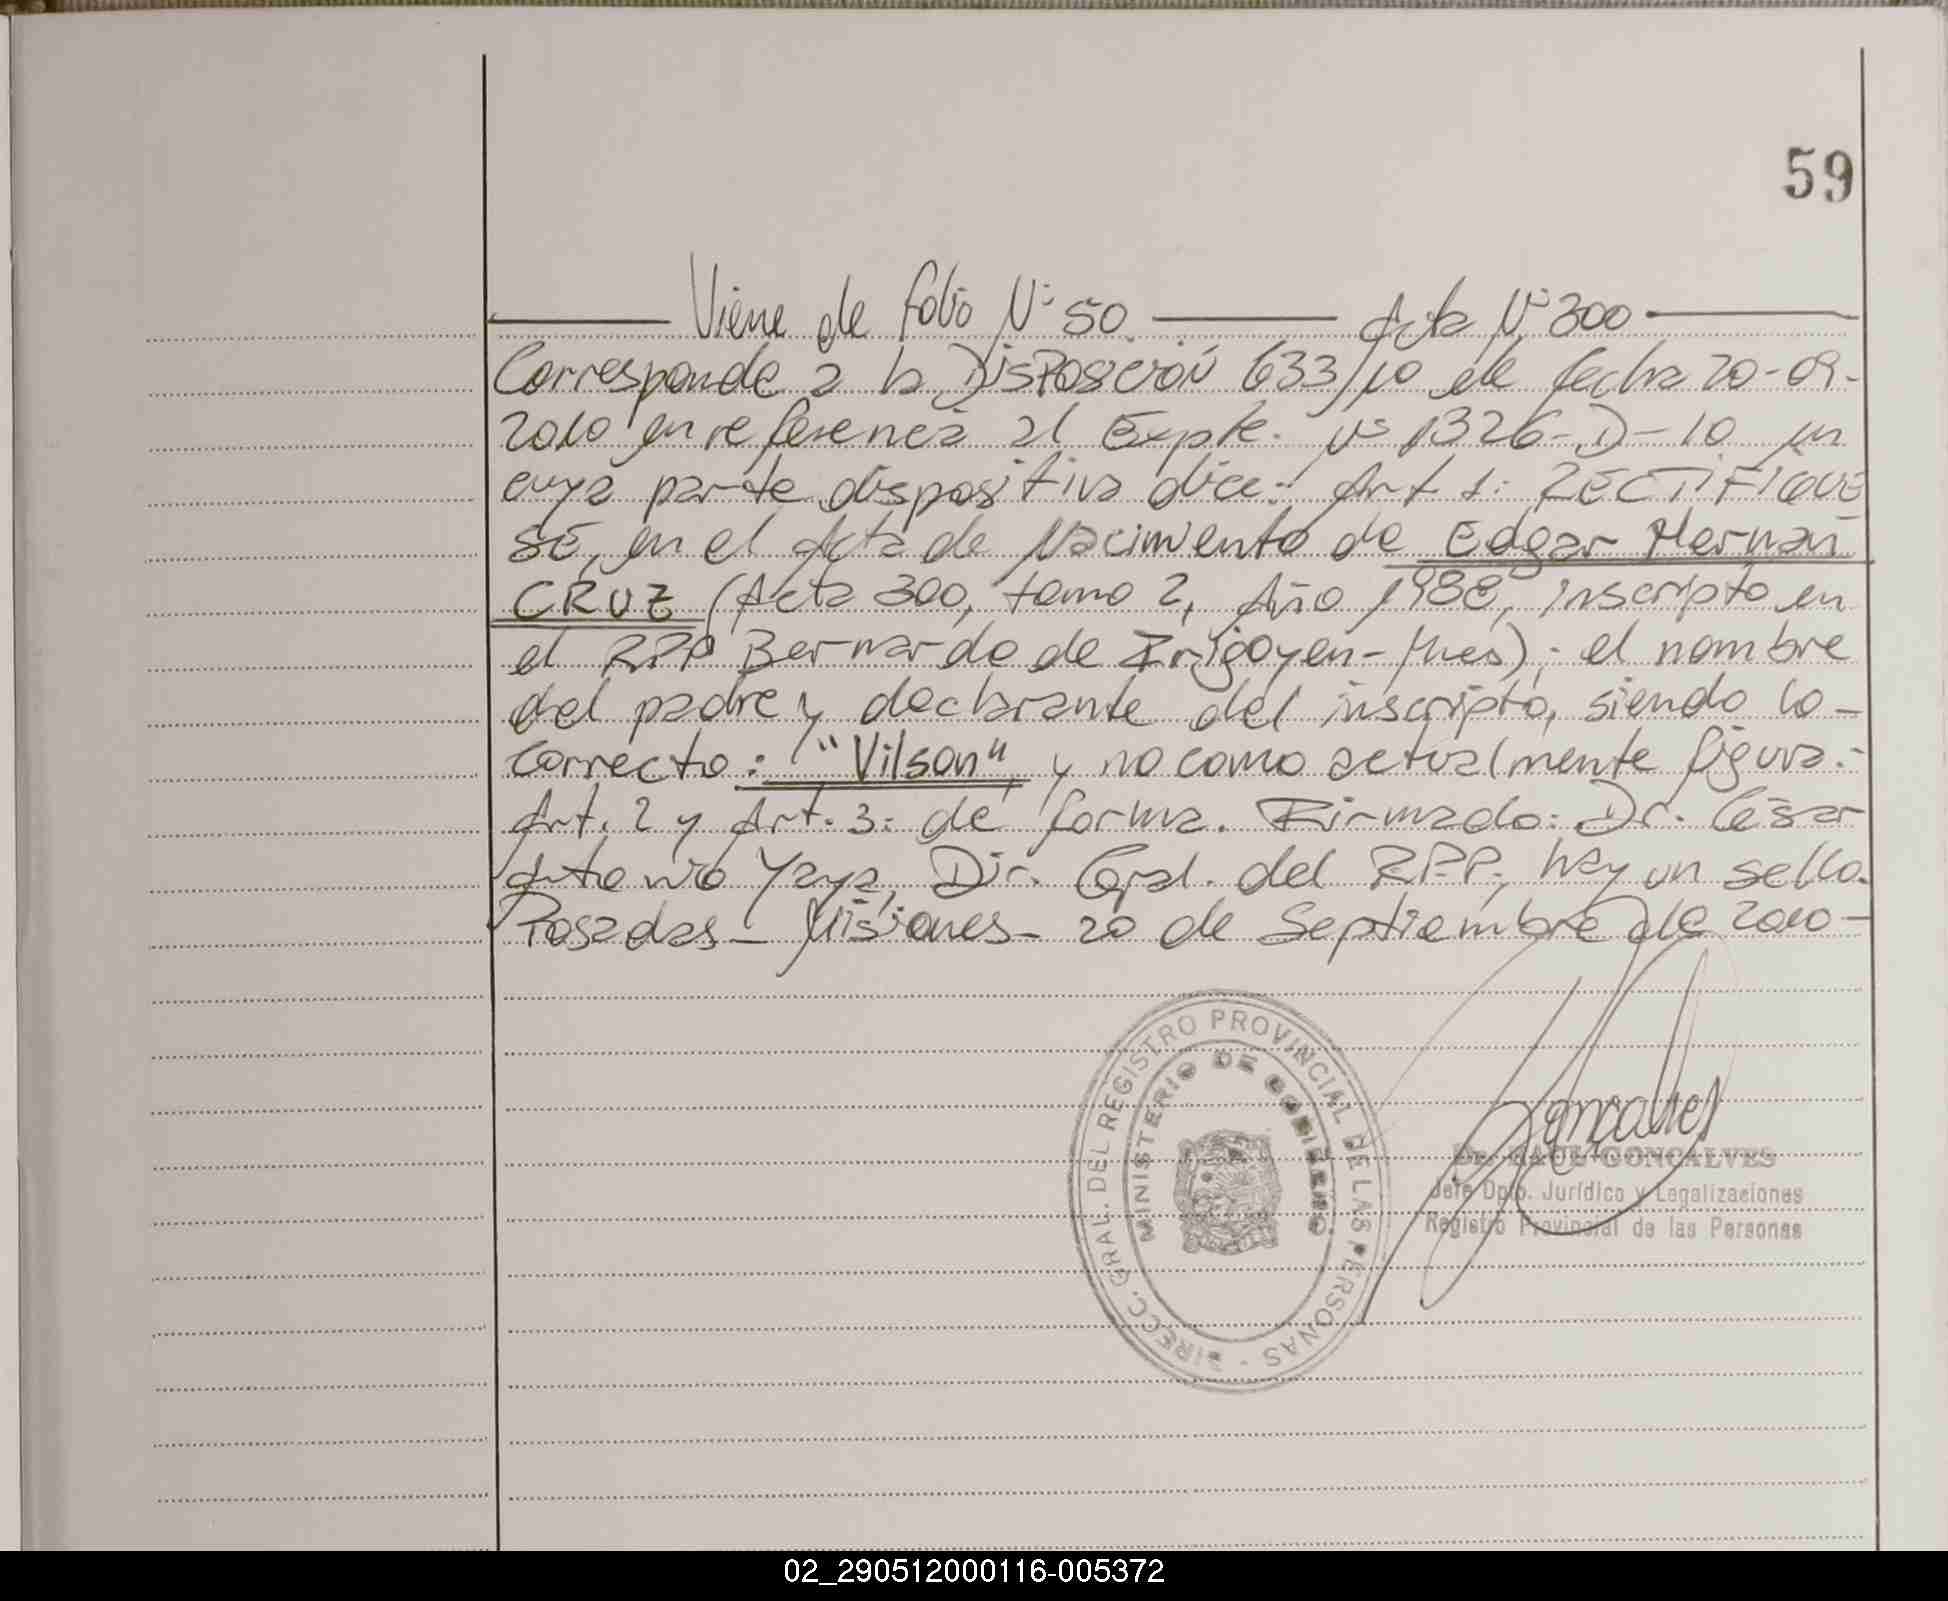 59
Viene de folio N° 50 — Acta N° 300 —
Corresponde a la Disposición 633/10 de fecha 20-09-
2010 en referencia al Expte. N° 1326-D-10 en
cuya parte dispositiva dice: Art. 1: RECTIFIQUE
SE, en el Acta de Nacimiento de Edgar Hernán
CRUZ (Acta 300, tomo 2, Año 1988, inscripto en
el RPP Bernardo de Irigoyen - Mnes); el nombre
del padre y declarante del inscripto, siendo lo -
correcto: "Vilson", y no como actualmente figura.-
Art. 2 y Art. 3: de forma. Firmado: Dr. César
Antonio Yaya, Dir. Gral. del R.P.P., hay un sello.
Posadas - Misiones - 20 de Septiembre de 2010 -
DIRECC. GRAL. DEL REGISTRO PROVINCIAL DE LAS PERSONAS -
MINISTERIO DE GOBIERNO
Goncalves
Dr. RAUL GONCALVES
Jefe Dpto. Jurídico y Legalizaciones
Registro Provincial de las Personas
02_290512000116-005372